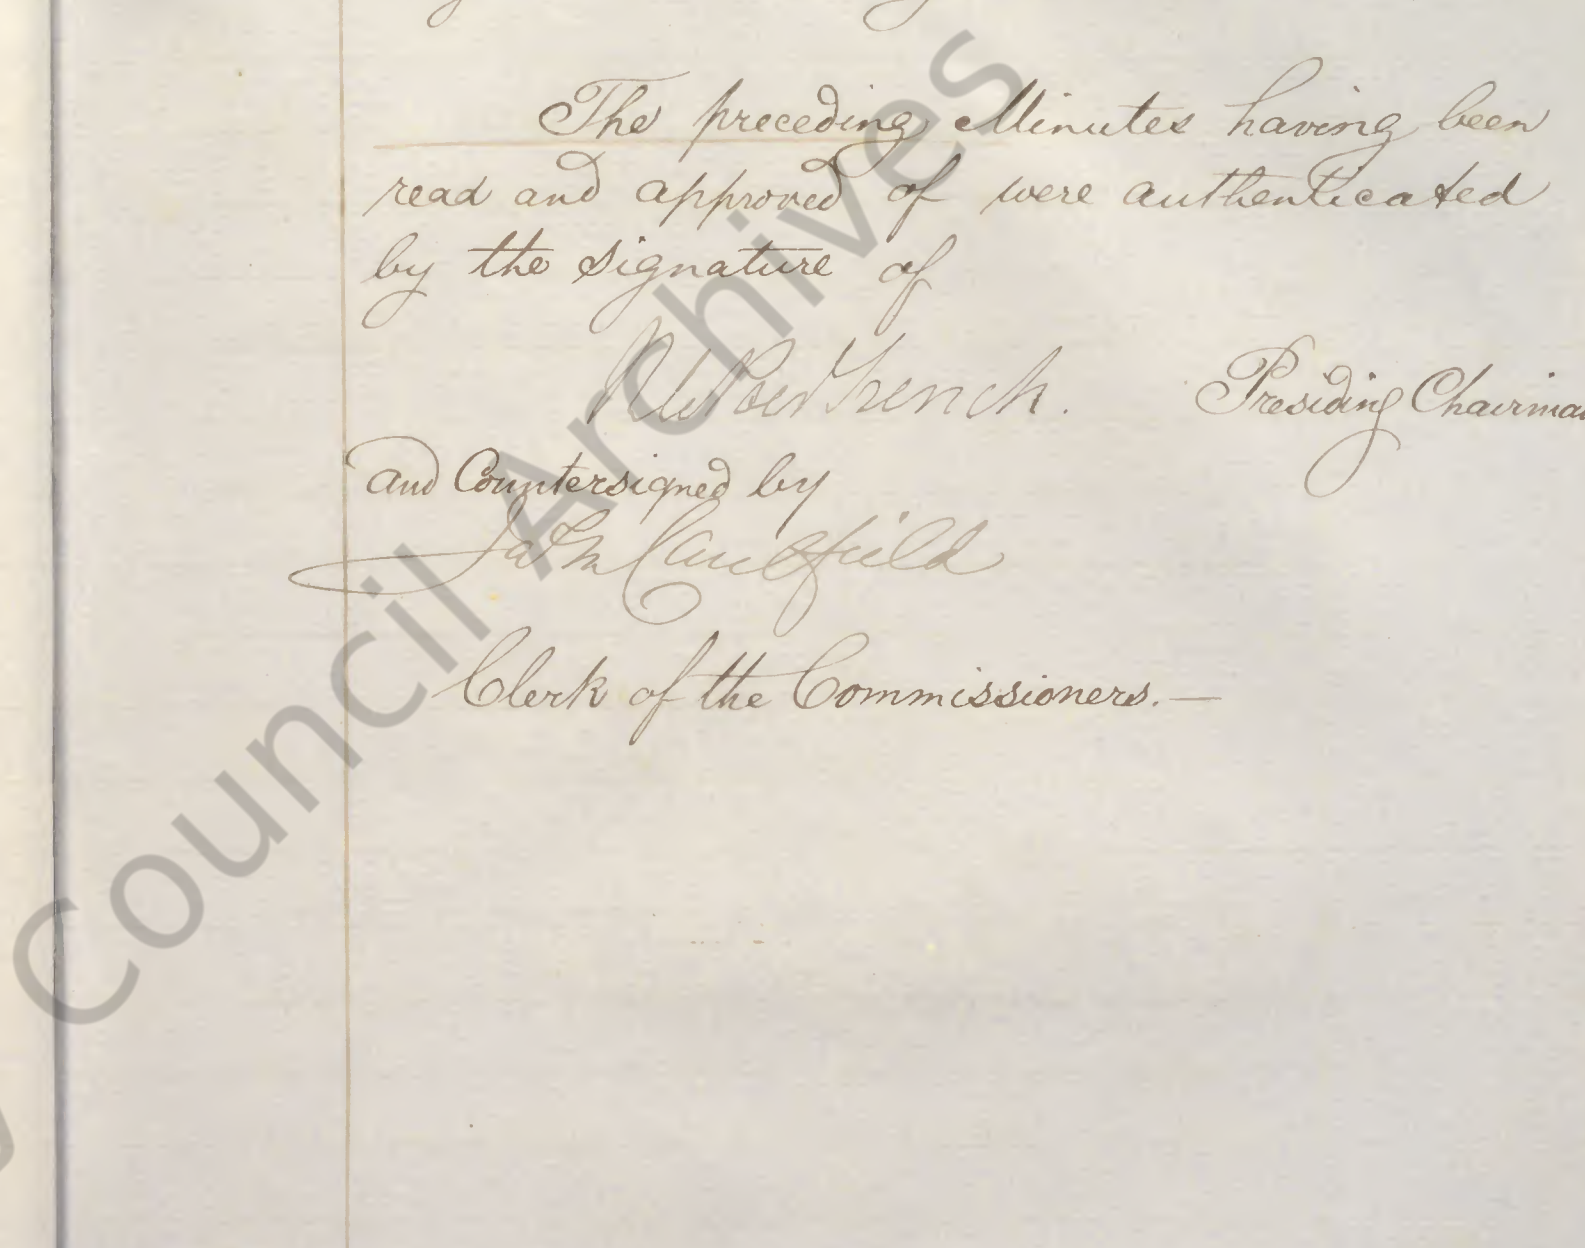 The preceding Minutes having been
read and approved of were authenticated
by the signature of
Trench. Presiding Chairman
and Countersigned by
Caulfield
Clerk of the Commissioners. —
Council Archives